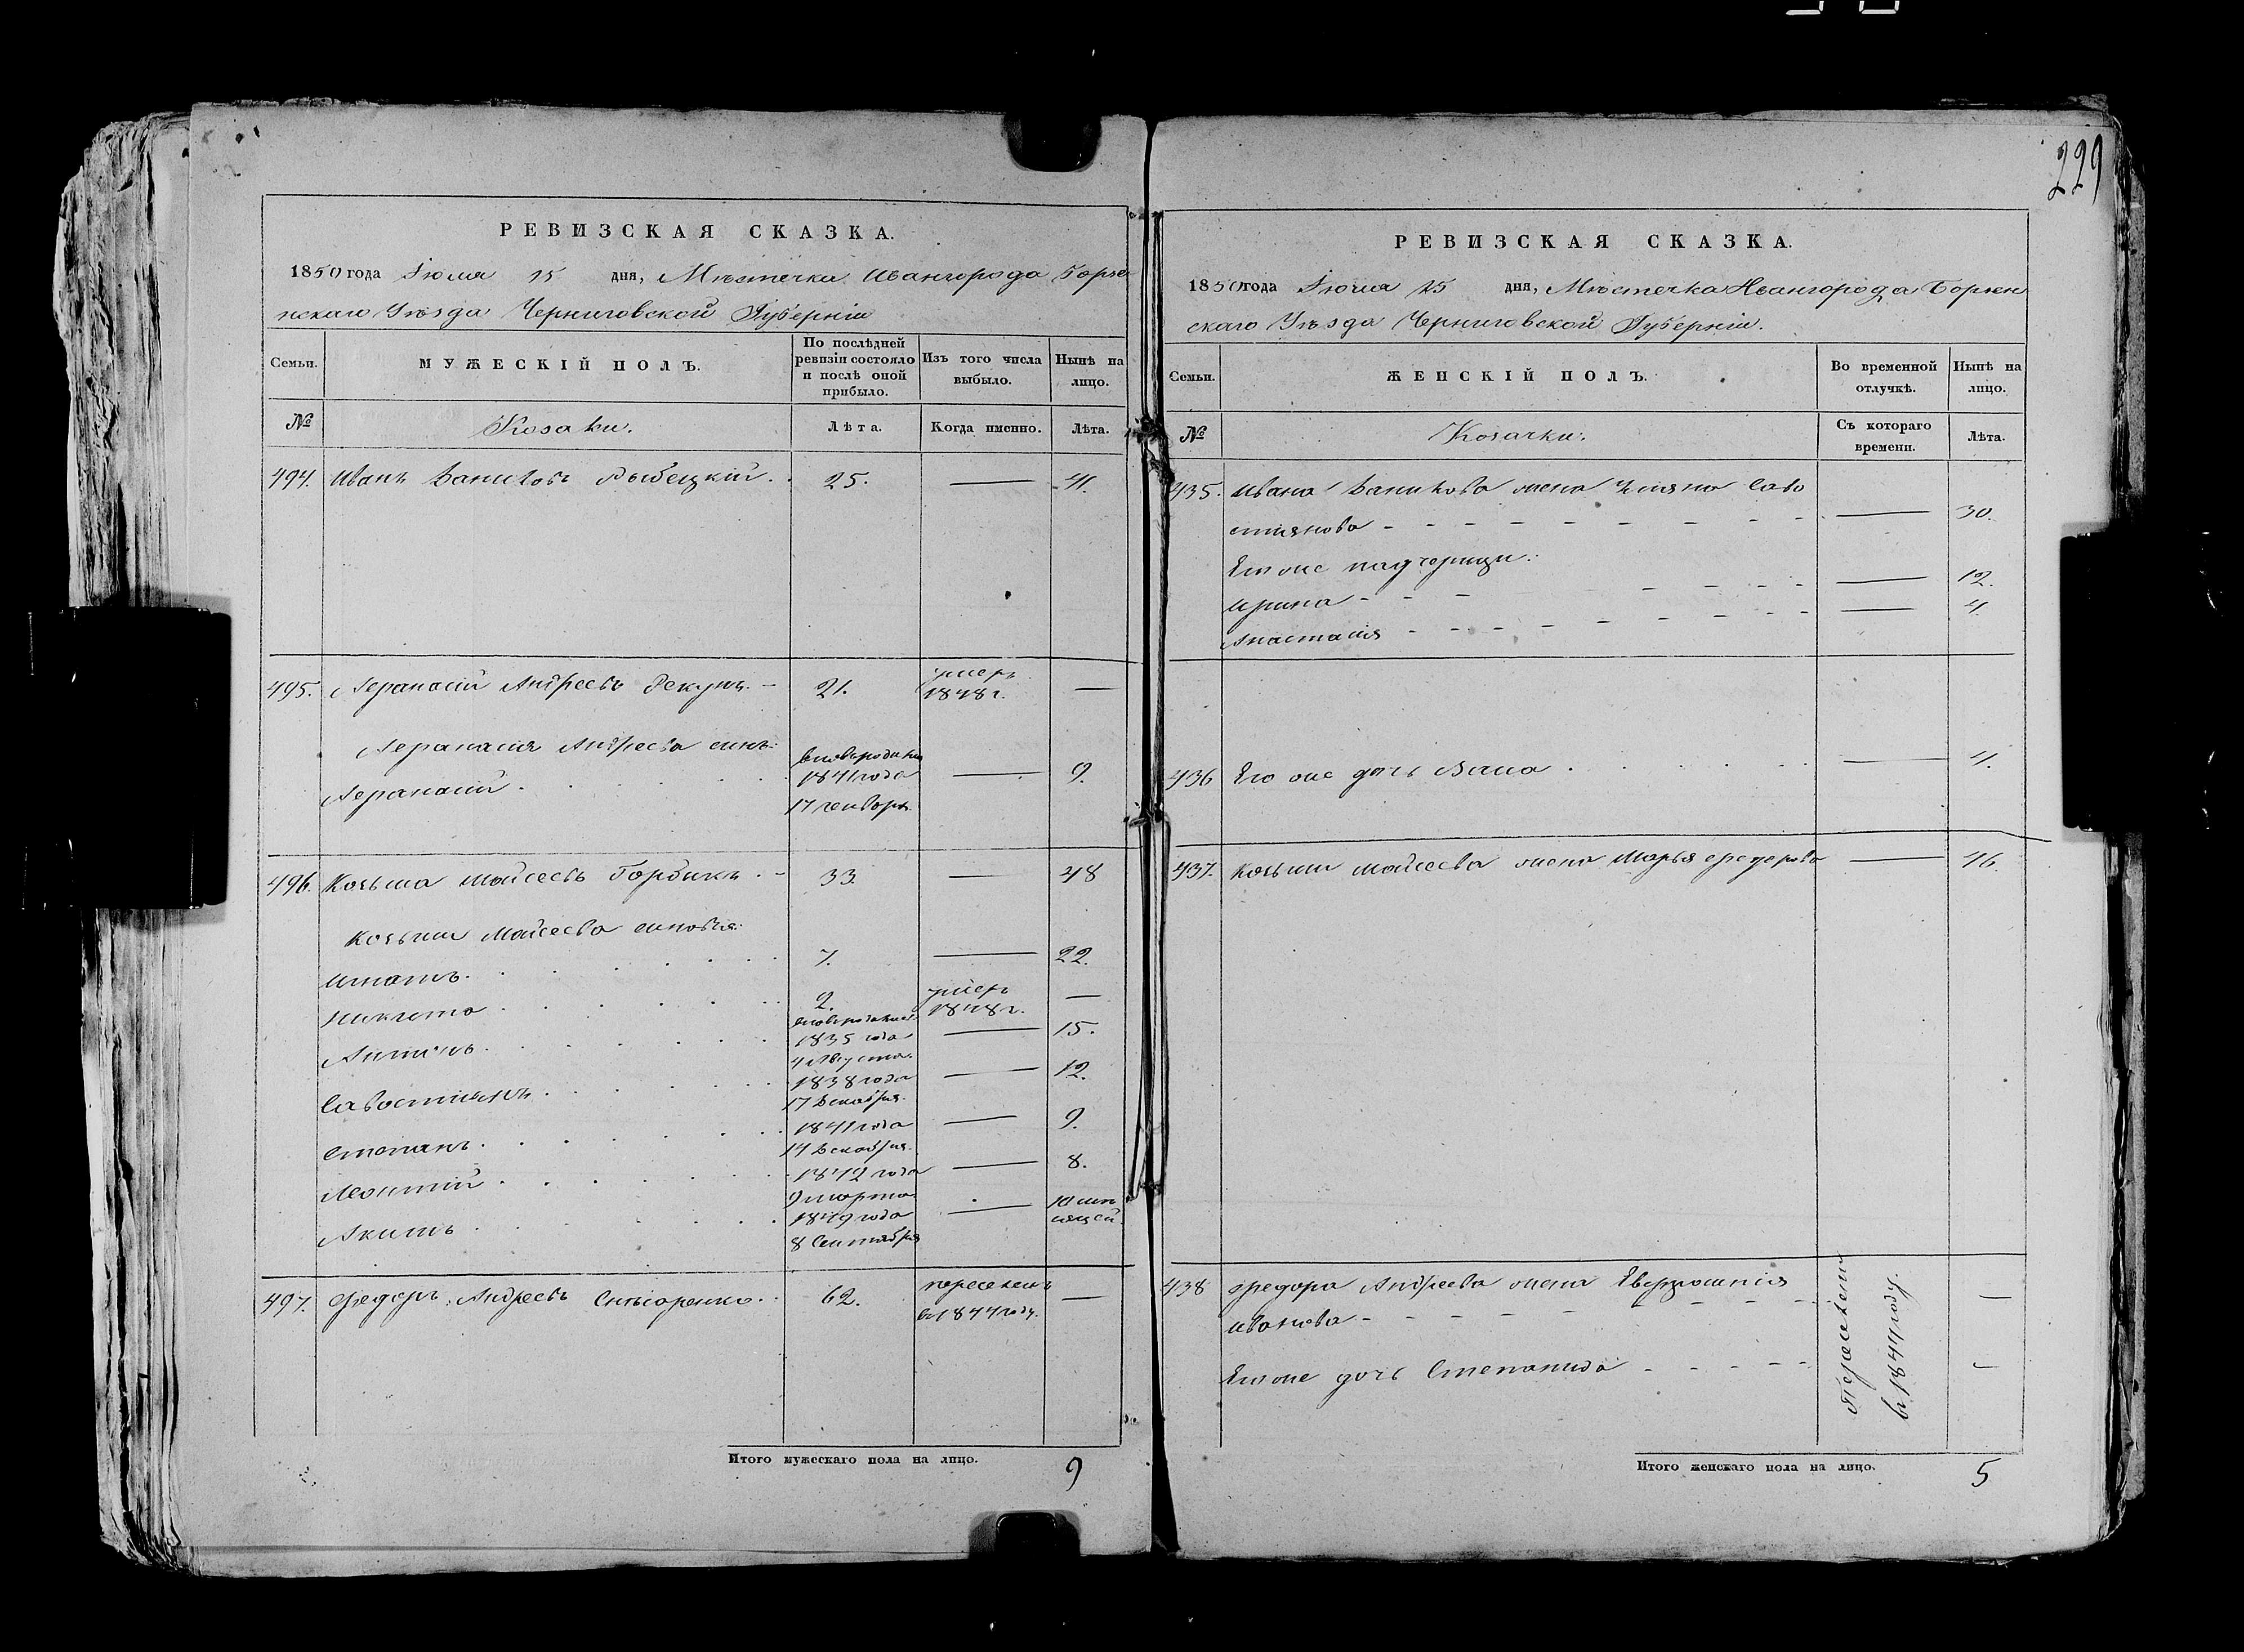 229
РЕВИЗСКАЯ СКАЗКА.
1850 года Іюля 15 дня, Мѣстечка Ивангорода Борзе
нскаго Уѣзда Черниговской Губерніи
Семьи. МУЖЕСКІЙ ПОЛЪ. По послѣдней ревизіи состояло и послѣ оной прибыло. Изъ того числа выбыло. Нынѣ на лицо.
№ Козаки. Лѣта. Когда именно. Лѣта.
494. Иванъ Даниловъ 25. — 41.
495. Афанасій Андреевъ Рекунъ. 21. умеръ 1848 г. —
Афанасія Андреева сынъ:
Афанасій. вновьрожден 1841 года 17 генваря. — 9.
496. Козьма Мойсеевъ Горбикъ. 33. — 48
Козьмы Мойсеева сыновья:
Игнатъ. 7. — 22.
Никита 2. умеръ 1848 г. —
Антонъ. вновьрожден 1835 года 4 Августа. — 15.
Савостьянъ. 1838 года 17 Декабря. — 12.
Степанъ. 1841 года 14 Декабря. — 9.
Леонтій 1842 года 9 марта — 8.
Акимъ 1849 года 8 Сентября — 10 мѣсяцей.
497. Федоръ Андреевъ Снѣсаренко. 62. переселенъ въ 1844 году. —
Итого мужескаго пола на лицо. 9
РЕВИЗСКАЯ СКАЗКА.
1850 года Іюля 15 дня, Мѣстечка Ивангорода Борзен
скаго Уѣзда Черниговской Губерніи.
Семьи. ЖЕНСКІЙ ПОЛЪ. Во временной отлучкѣ. Нынѣ на лицо.
№ Козачки. Съ котораго времени. Лѣта.
435. Ивана Данилова жена Ульяна Саво
стьянова — 30.
Его же падчерицы:
Ирина — 12.
Анастасія — 4.
436 Его же дочь — 4.
437. Козьмы Мойсеева жена Марья Федорова — 46.
438 Федора Андреева жена
Иванова —
Его же дочь Степанида —
Переселены
въ 1844 году.
Итого женскаго пола на лицо. 5